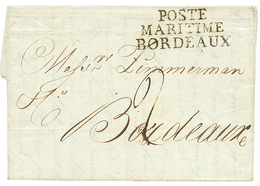 POSTE
MARITIME
BORDEAUX
Mess.rs Zimmerman
2
Bordeaux